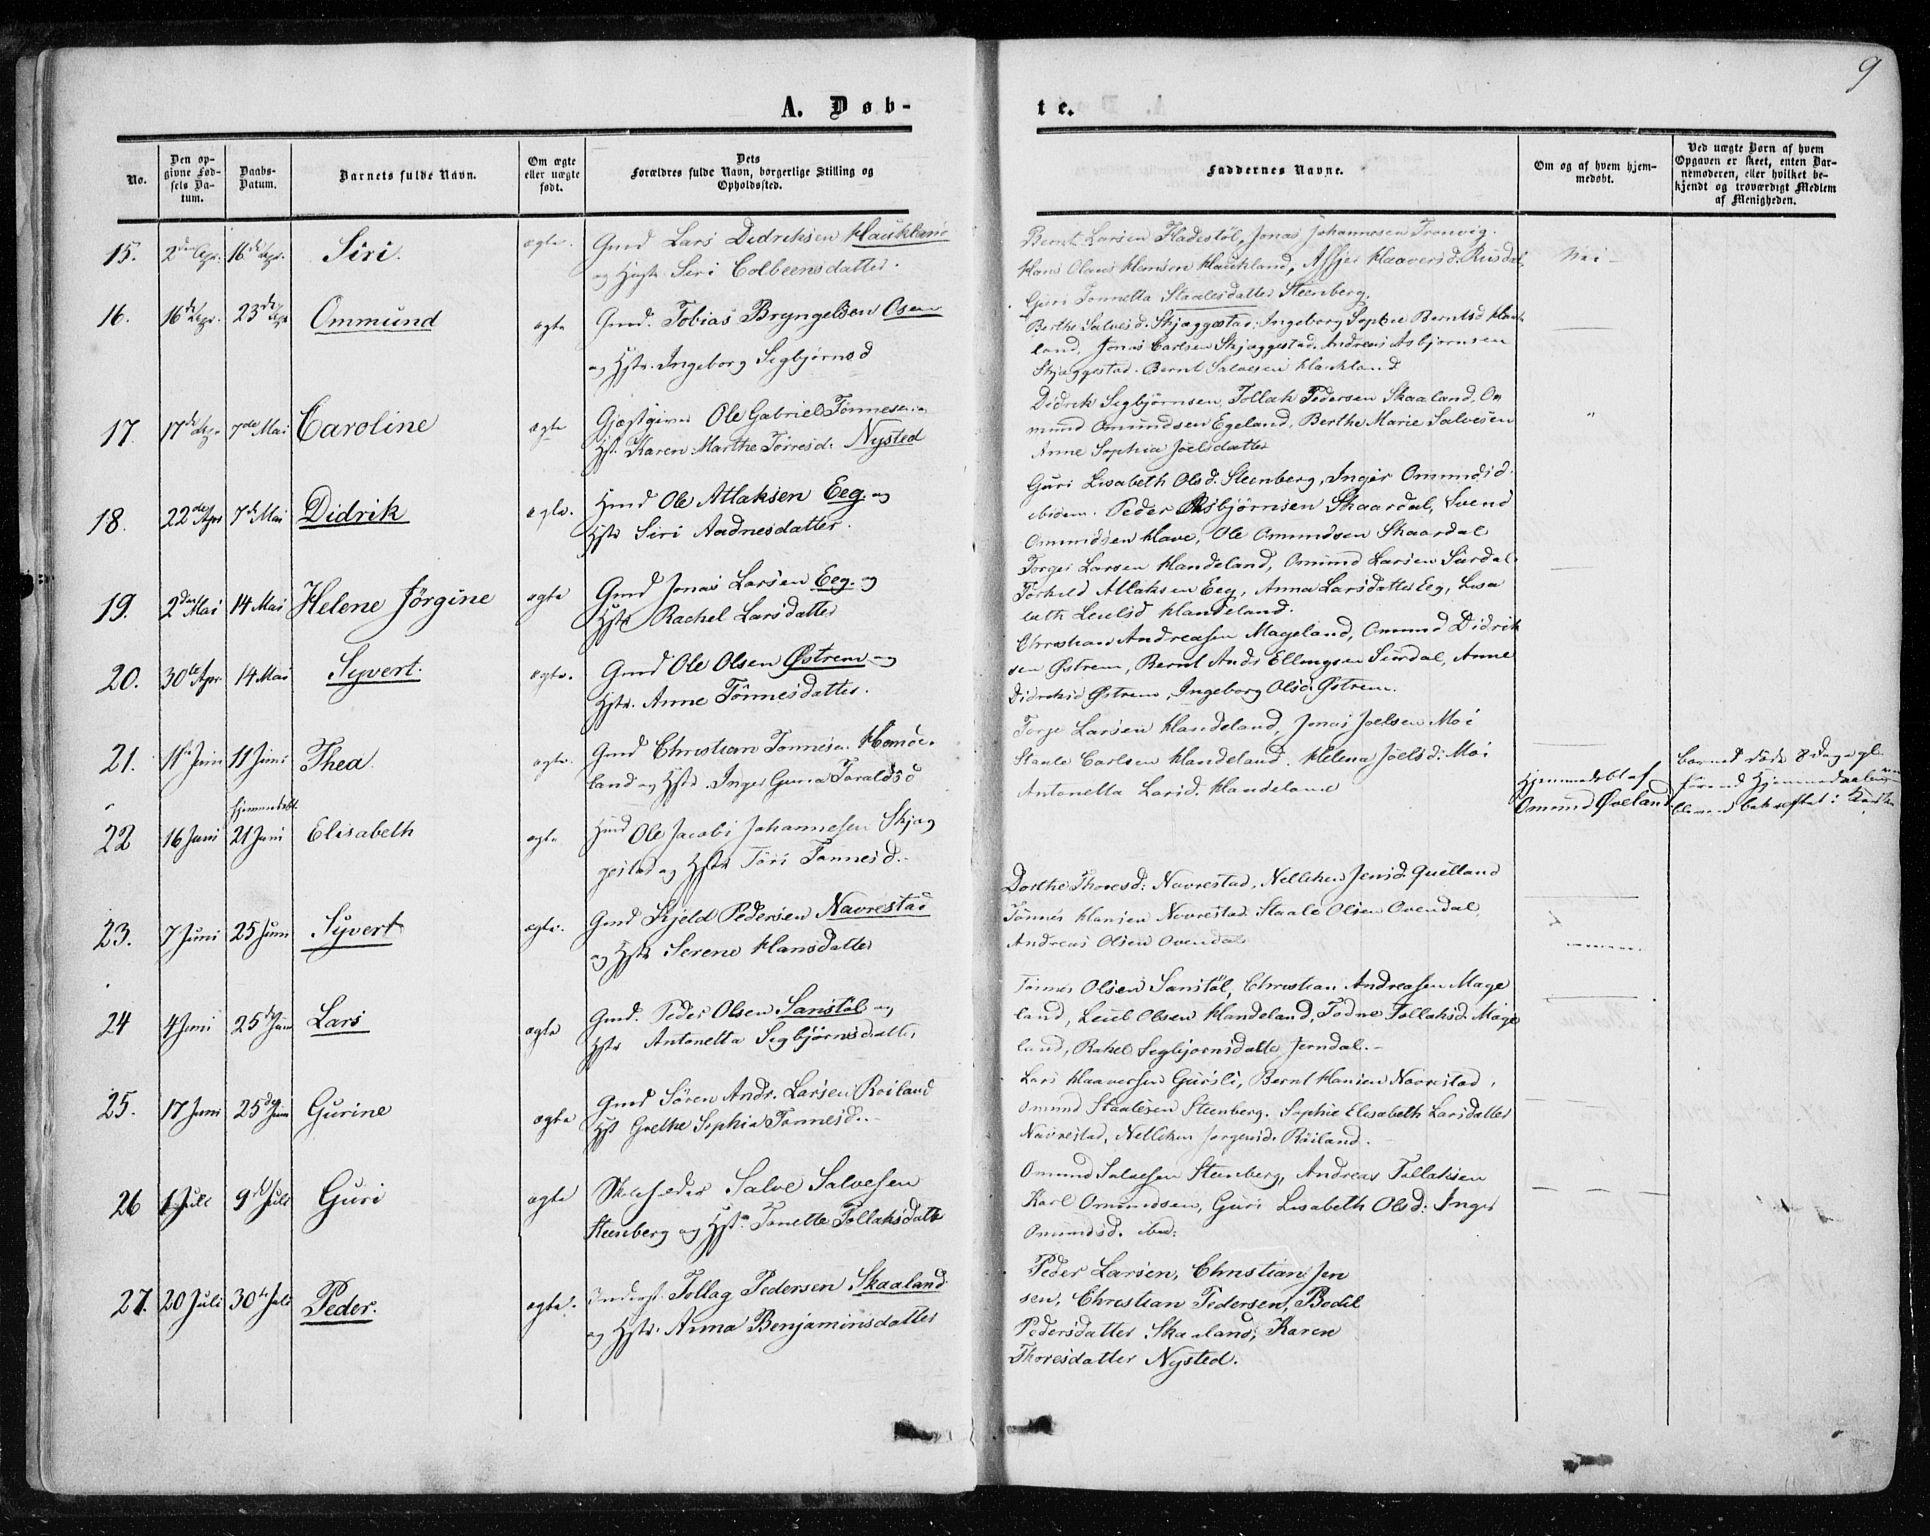 9
A. Døb-
te.
No.
Den op-
givne Fød-
sels Da-
tum.
Daabs-
Datum.
Barnets fulde Navn.
Om ægte
eller uægte
født.
Dets
Forældres fulde Navn, borgerlige Stilling og
Opholdssted.
Faddernes Navne.
Om og af hvem hjem-
medøbt.
Ved uægte Børn af hvem
Opgaven er skeet, enten Bar-
nemoderen, eller hvilket be-
kjendt og troværdigt Medlem
af Menigheden.
15. 2den Apr. 16de Apr. Siri. ægte. Gmd Lars Didriksen Haukland
og Hustr. Siri Colbeensdatter.
Bernt Larsen Fladestøl, Jonas Johannesen Tronvig.
Hans Olaus Hansen Haukland, Assjer Haaversd. Rusdal,
Guri Tonnetta Staalesdatter Steenberg.
Nei
16. 16de Apr. 23de Apr Ommund ægte Gmd. Tobias Bryngelsen Osen
og Hstr. Ingeborg Segbjørnsd
Berthe Salvesd. Skjæggestad, Ingeborg Sophie Berntsd Hauk-
land. Jonas Carlsen Skjæggestad. Andreas Asbjørnsen
Skjæggestad. Bernt Salvesen Haukland
17. 17de Apr. 7de Mai Caroline ægte Gjæstgiver Ole Gabriel Tønnesen
Hst. Karen Marthe Torresd. Nysted
Didrik Segbjørnsen, Tollak Pedersen Skaaland, Om
mund Omundsen Egeland, Berthe Marie Salvesen
Anne Sophia Joelsdatter
"
18. 22de Apr 7de Mai Didrik ægte. Hmd Ole Atlaksen Eeg. og
Hstr Siri Aadnesdatter.
Guri Lisabeth Olsd. Steenberg, Inger Ommundsd.
ibidem. Peder Asbjørnsen Skaardal, Svend
Ommundsen Have, Ole Ommundsen Skaardal
19. 2den Mai 14 Mai Helene Jörgine ægte Gmd Jonas Larsen Eeg. og
Hstr Rachel Larsdatter
Torger Larsen Handeland, Omund Larsen Surdal
Torkild Atlaksen Eeg, Anna Larsdatter Eeg, Lisa
beth Leulsd Handeland.
20. 30te Apr 14 Mai Syvert. ægte. Gmd Ole Olsen Østrem og
Hstr. Anne Tönnesdatter.
Christian Andreasen Mageland, Omund Didrik
sen Østrem, Bernt Ands Ellingsen Surdal, Anne
Didriksd Østrem, Ingeborg Olsd Østrem.
21. 11te Juni 11 Juni Thea. ægte. Gmd Christian Tonnesen Homöe-
land og Hstr. Inger Guria Taraldsd
Torge Larsen Handeland, Jonas Joelsen Moi
Staale Carlsen Handeland. Helena Joelsd. Moi
Antonetta Larsd. Handeland
22 16 Juni Hjemmedøbt 21 Juni Elisabeth ægte Hmd Ole Jacob Johannesen Skjæg
gestad og Hstr. Tönnesd.
Hjemmedøbt af
Omund Øveland
barnet døde 8 dage gl.
førend Hjemmedaaben
bekræftet i Kirken.
23. 7 Juni 25 Juni Syvert ægte. Gmd Kjeld Pedersen Navrestad
og Hstr Serene Hansdatter
Dorthe Thoresd. Navrestad, Nelliken Jensd. Quelland
Tönnes Hansen Navrestad. Staale Olsen Ovendal
Andreas Olsen Ovendal
24 4 Juni 25de Juni Lars ægte Gmd. Peder Olsen Sanstöl og
Hstr Antonetta Segbjörnsdatter
Tönnes Olsen Sanstöl, Christian Andreasen Mage
land, Leul Olsen Handeland, Todne Tollaksd. Mage
land, Rakel Segbjornsdatter Jerndal.
25. 17 Juni 25de Juni Gurine ægte Gmd Sören Andr. Larsen Roiland
Hst Grethe Sophia Tönnesd.
Lars Haaversen Gursli, Bernt Hansen Navrestad,
Omund Staalesen Steenberg. Sophie Elisabeth Larsdatter
Navrestad, Nelliken Jorgensd. Röiland.
26 1 Juli 9de Juli Guri ægte Skoleholder Salve Salvesen
Steenberg og Hstr. Tonette Tollaksdatter
Omund Salvesen Steenberg, Andreas Tollaksen
Karl Omundsen, Guri Lisabeth Olsd: Inger
Omundsd. ibid:
27. 20 Juli 30te Juli Peder. ægte. Inderst. Tollag Pedersen Skaaland
og Hstr. Anna Benjaminsdatter
Peder Larsen, Christian Jen
sen, Christian Pedersen, Bodil
Pedersdatter Skaaland, Karen
Thoresdatter Nysted.